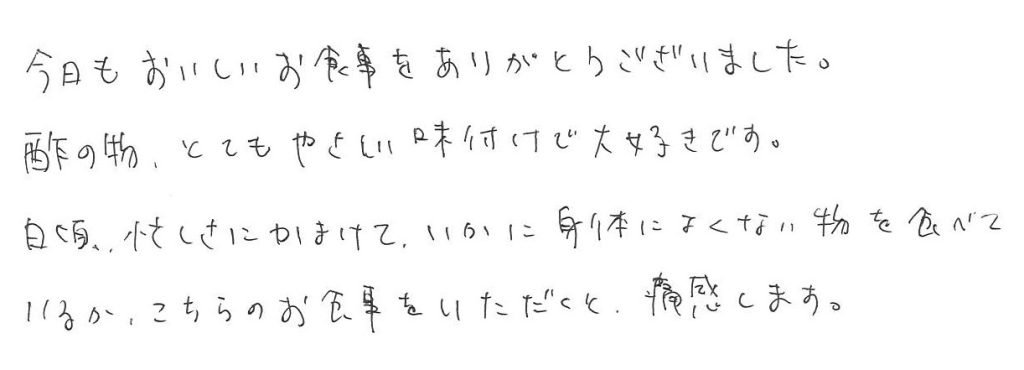 今日もおいしいお食事をありがとうございました。
酢の物、とてもやさしい味付けで大好きです。
日頃、忙しさにかまけて、いかに身体によくない物を食べて
いるか、こちらのお食事をいただくと、痛感します。